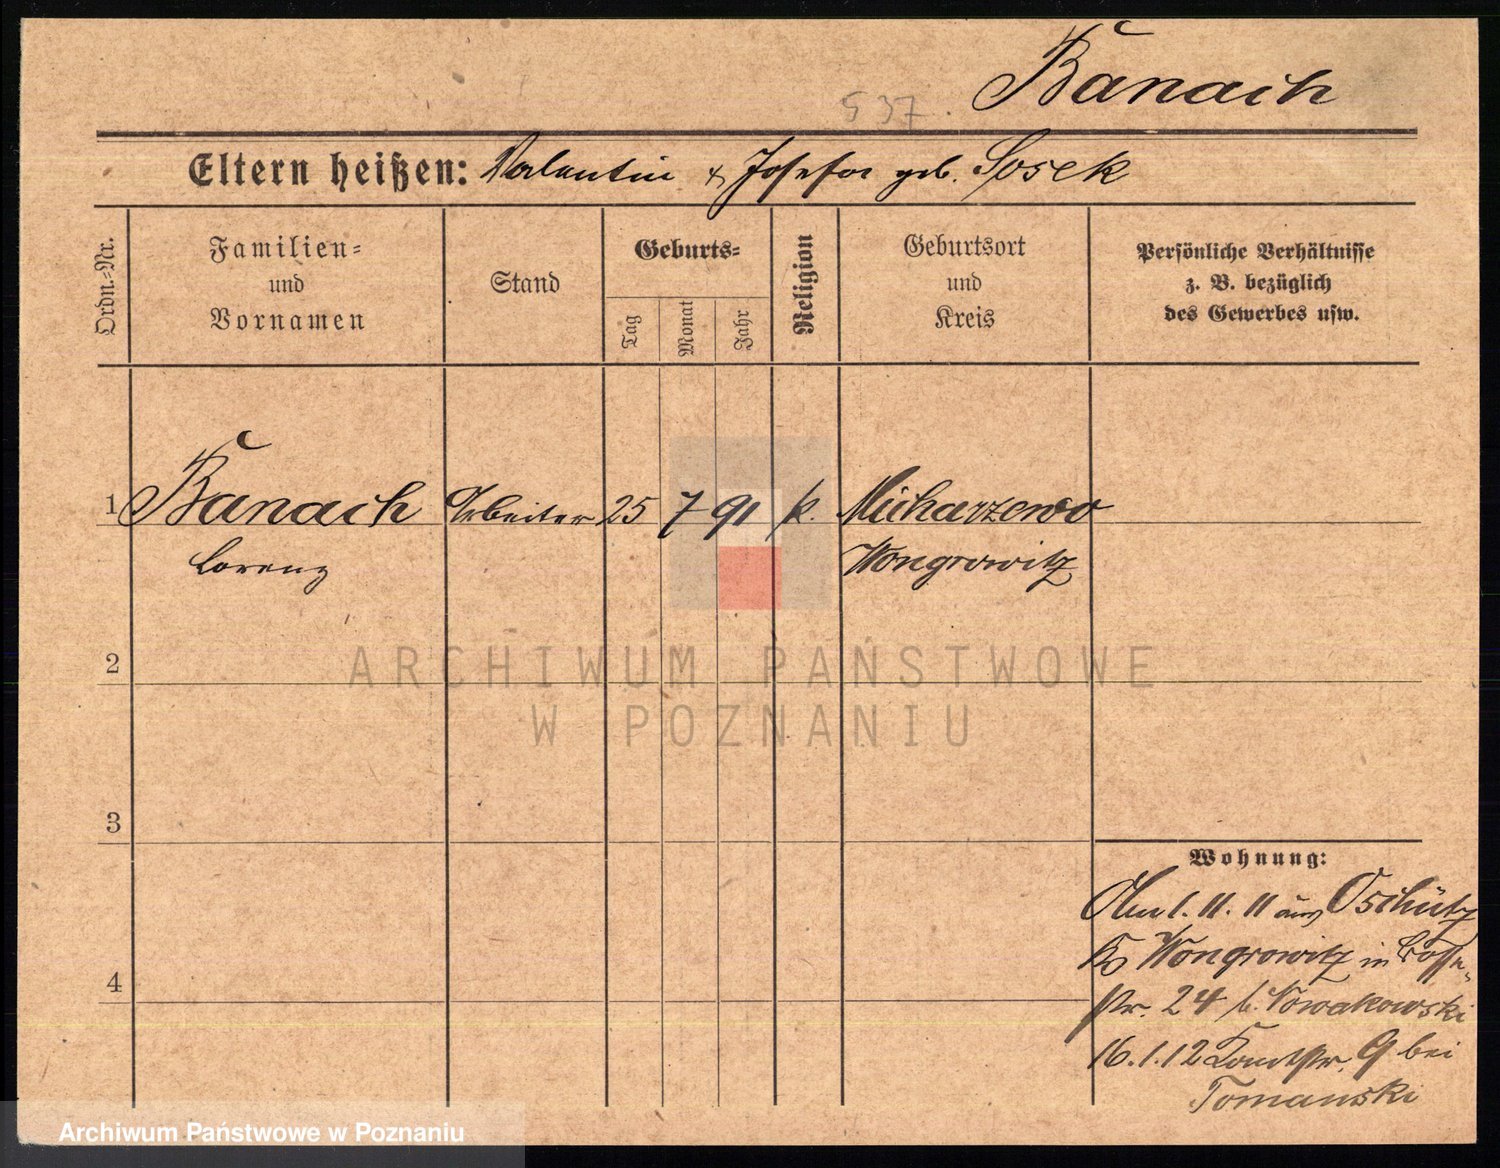 Banach
537.
Eltern heißen: Valentin & Josefa geb. Sosek
Ordn.=Nr.
Familien=
und
Vornamen
Stand
Geburts=
Tag
Monat
Jahr
Religion
Geburtsort
und
Kreis
Persönliche Verhältnisse
z. B. bezüglich
des Gewerbes usw.
1 Banach Arbeiter 25 7 91 k. Micharzewo
Lorenz Wongrowitz
2
ARCHIWUM PAŃSTWOWE
W POZNANIU
3
4
Wohnung:
Am 1.11.11 aus Oschütz
Ks Wongrowitz in
str. 24 b. Nowakowski
16.1.12 9 bei
Tomanski
Archiwum Państwowe w Poznaniu